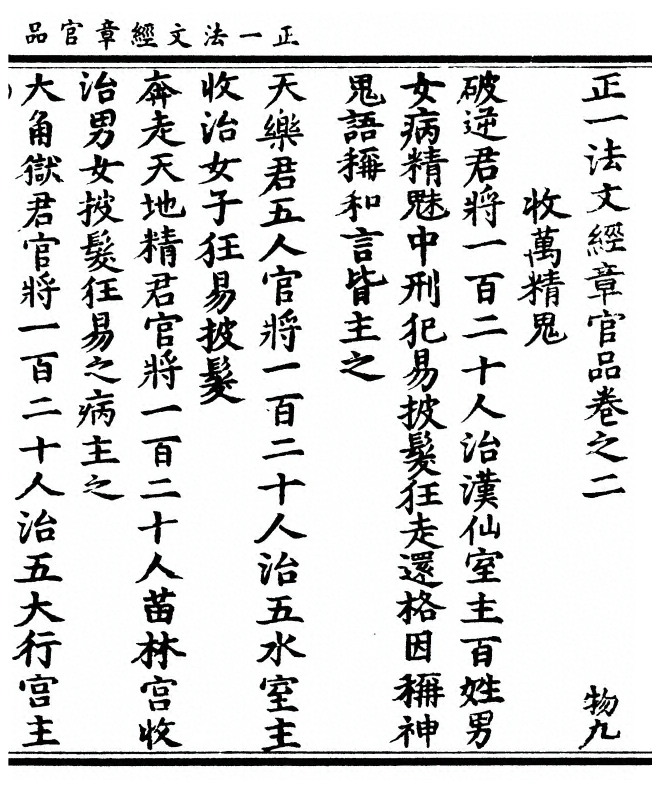 正一法文經章官品
正一法文經章官品卷之二　物九
收萬精鬼
破逆君將一百二十人治漢仙室主百姓男
女病精魅中刑犯易披髮狂走還格因稱神
鬼語稱和言皆主之
天樂君五人官將一百二十人治五水室主
收治女子狂易披髮
奔走天地精君官將一百二十人苗林宮收
治男女披髮狂易之病主之
大角獄君官將一百二十人治五大行宮主